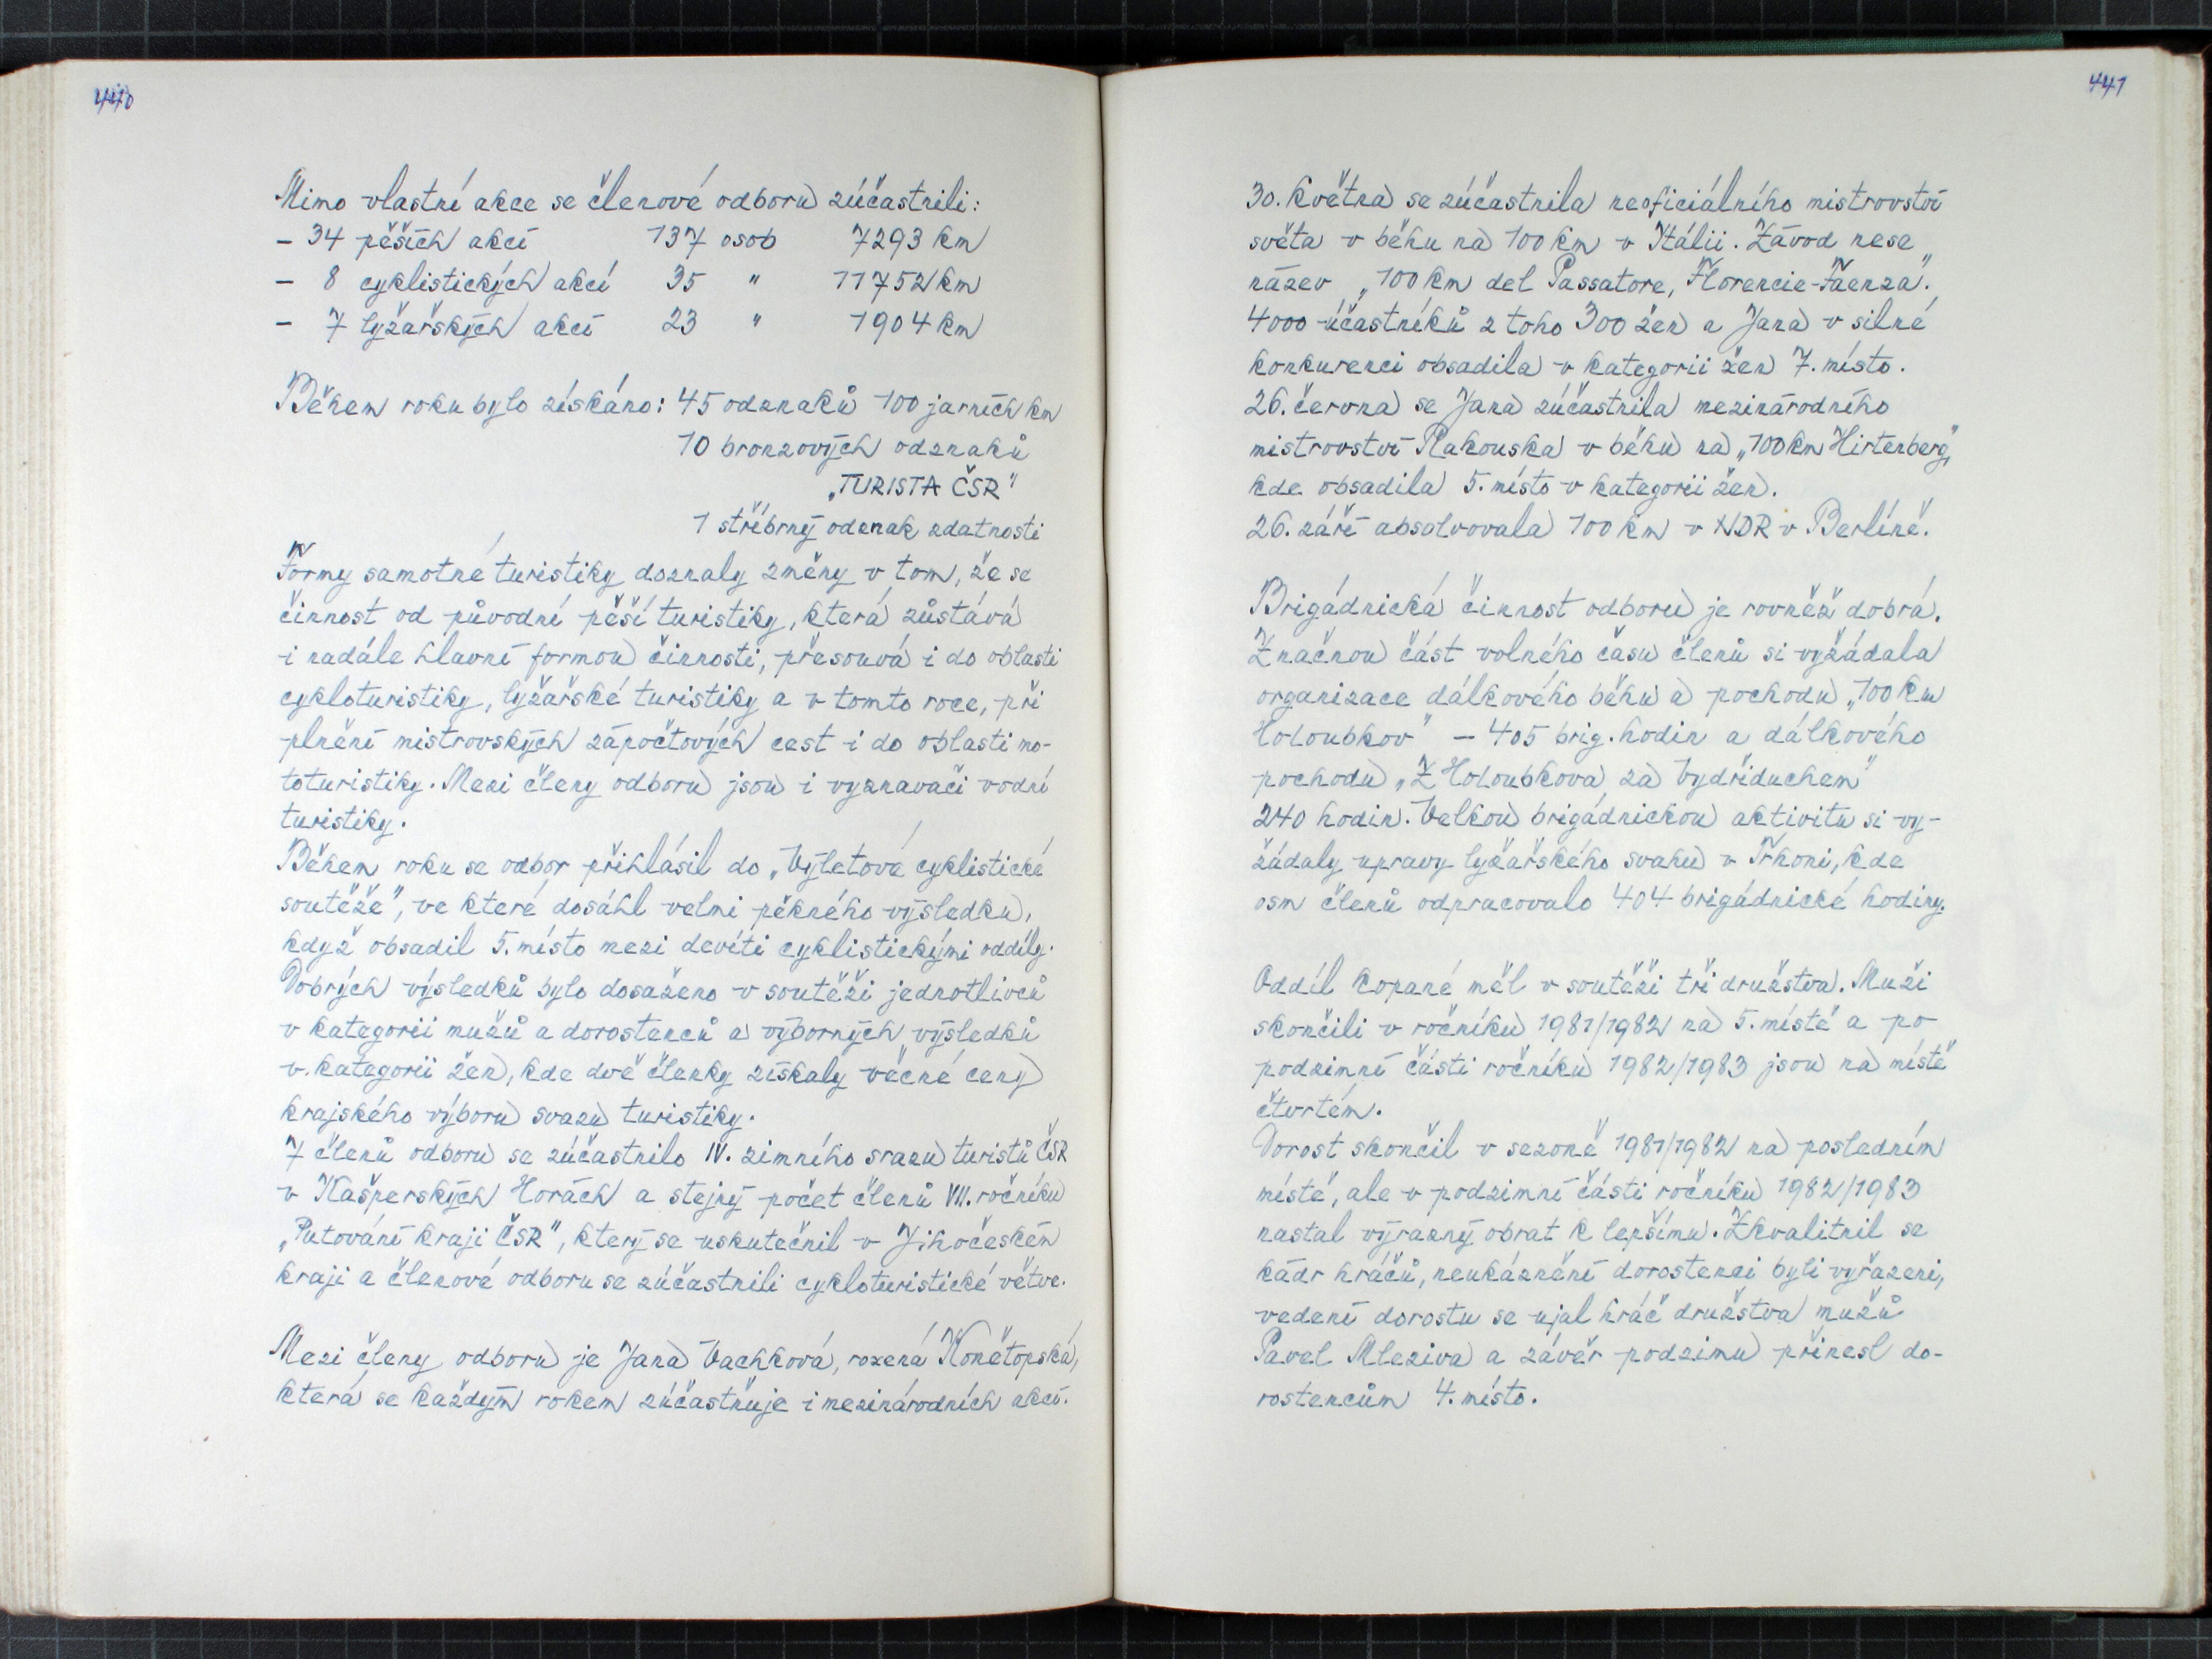 440
Mimo vlastní akce se členové odboru zúčastnili:
- 34 pěších akcí 137 osob 7293 km
- 8 cyklistických akcí 35 " 11752 km
- 7 lyžařských akcí 23 " 1904 km
Během roku bylo získáno: 45 odznaků 100 jarních km
10 bronzových odznaků
„TURISTA ČSR"
1 stříbrný odznak zdatnosti
Formy samotné turistiky doznaly změny v tom, že se
činnost od původní pěší turistiky, která zůstává
i nadále hlavní formou činnosti, přesouvá i do oblasti
cykloturistiky, lyžařské turistiky a v tomto roce, při
plnění mistrovských zápočtových cest i do oblasti mo-
toturistiky. Mezi členy odboru jsou i vyznavači vodní
turistiky.
Během roku se odbor přihlásil do „Výletové cyklistické
soutěže", ve které dosáhl velmi pěkného výsledku,
když obsadil 5. místo mezi devíti cyklistickými oddíly.
Dobrých výsledků bylo dosaženo v soutěži jednotlivců
v kategorii mužů a dorostenců a výborných výsledků
v kategorii žen, kde dvě členky získaly věcné ceny
krajského výboru svazu turistiky.
7 členů odboru se zúčastnilo IV. zimního srazu turistů ČSR
v Kašperských Horách a stejný počet členů VII. ročníku
„Putování kraji ČSR", který se uskutečnil v Jihočeském
kraji a členové odboru se zúčastnili cykloturistické větve.
Mezi členy odboru je Jana Vachková, rozená Konětopská,
která se každým rokem zúčastňuje i mezinárodních akcí.
441
30. května se zúčastnila neoficiálního mistrovství
světa v běhu na 100 km v Itálii. Závod nese
název „100 km del Passatore, Florencie-Faenza".
4000 účastníků z toho 300 žen a Jana v silné
konkurenci obsadila v kategorii žen 7. místo.
26. června se Jana zúčastnila mezinárodního
mistrovství Rakouska v běhu na „100 km Hirtenberg"
kde obsadila 5. místo v kategorii žen.
26. září absolvovala 100 km v NDR v Berlíně.
Brigádnická činnost odboru je rovněž dobrá.
Značnou část volného času členů si vyžádala
organizace dálkového běhu a pochodu „100 km
Holoubkov" - 405 brig. hodin a dálkového
pochodu „Z Holoubkova za Vydřiduchem"
240 hodin. Velkou brigádnickou aktivitu si vy-
žádaly upravy lyžařského svahu v Trhoni, kde
osm členů odpracovalo 404 brigádnické hodiny.
Oddíl kopané měl v soutěži tři družstva. Muži
skončili v ročníku 1981/1982 na 5. místě a po
podzimní části ročníku 1982/1983 jsou na místě
čtvrtém.
Dorost skončil v sezoně 1981/1982 na posledním
místě, ale v podzimní části ročníku 1982/1983
nastal výrazný obrat k lepšímu. Zkvalitnil se
kádr hráčů, neukáznění dorostenci byli vyřazeni,
vedení dorostu se ujal hráč družstva mužů
Pavel Mleziva a závěr podzimu přinesl do-
rostencům 4. místo.